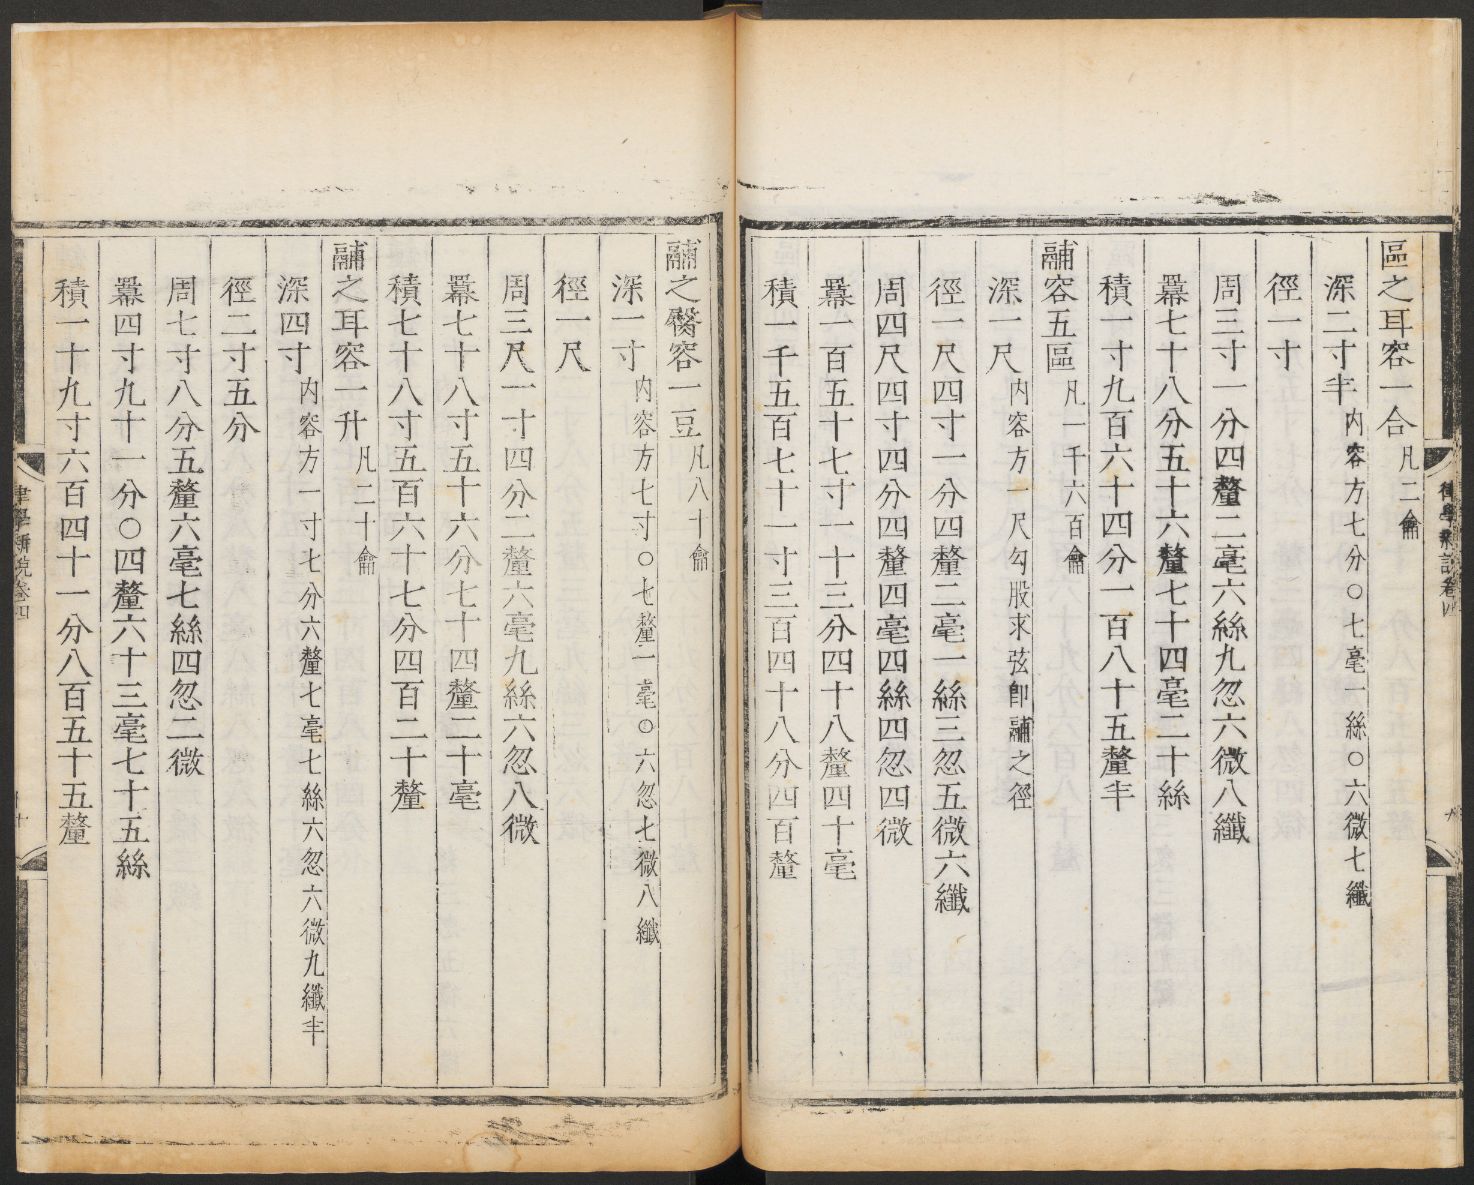 區之耳容一合凡二龠
深二寸半内容方七分〇七毫一絲〇六微七纖
徑一寸
周三寸一分四釐二毫六絲九忽六微八纖
羃七十八分五十六釐七十四毫二十絲
積一寸九百六十四分一百八十五釐半
鬴容五區凡一千六百龠
深一尺内容方一尺勾股求弦卽鬴之徑
徑一尺四寸一分四釐二毫一絲三忽五微六纖
周四尺四寸四分四釐四毫四絲四忽四微
羃一百五十七寸一十三分四十八釐四十毫
積一千五百七十一寸三百四十八分四百釐
律學新說卷四
鬴之臋容一豆凡八十龠
深一寸内容方七寸〇七釐一毫〇六忽七微八纖
徑一尺
周三尺一寸四分二釐六毫九絲六忽八微
羃七十八寸五十六分七十四釐二十毫
積七十八寸五百六十七分四百二十釐
鬴之耳容一升凡二十龠
深四寸内容方一寸七分六釐七毫七絲六忽六微九纖半
徑二寸五分
周七寸八分五釐六毫七絲四忽二微
羃四寸九十一分〇四釐六十三毫七十五絲
積一十九寸六百四十一分八百五十五釐
律學新說卷四
十